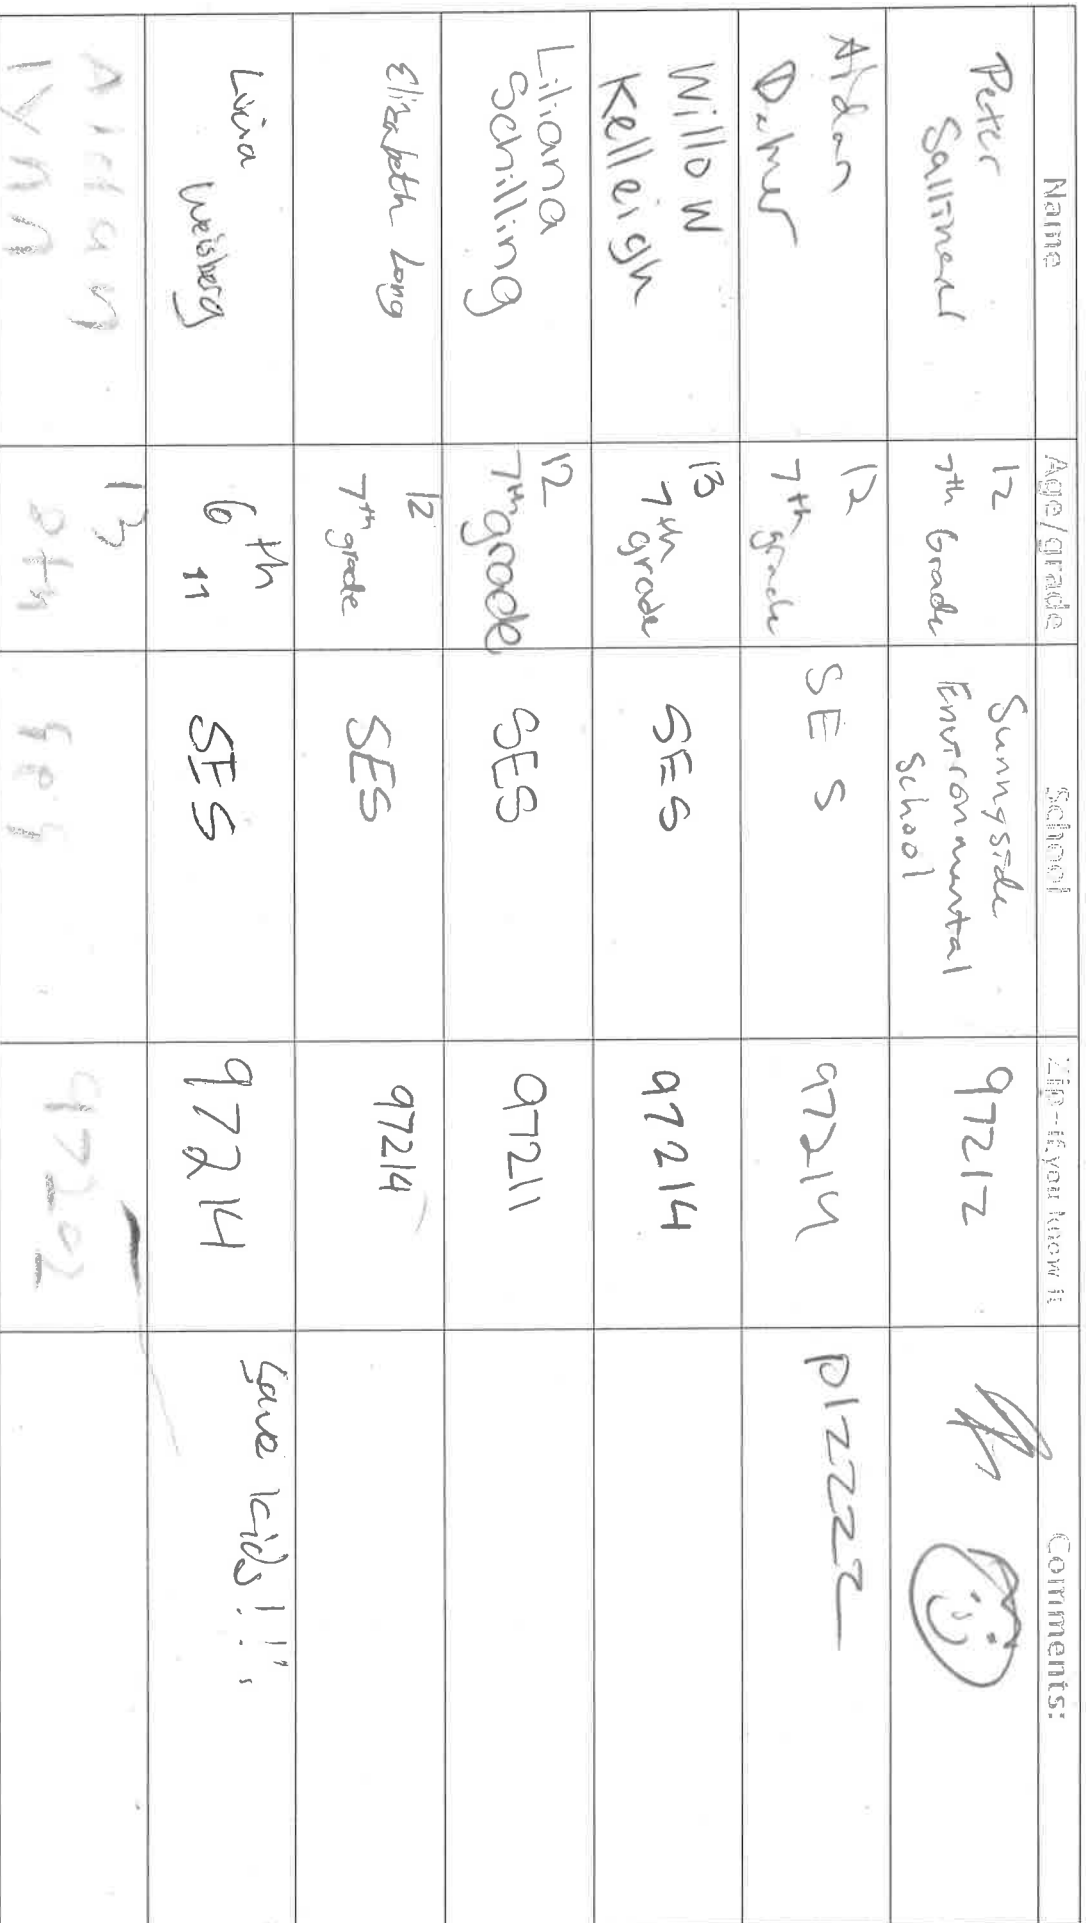 Name Age/grade School Zip-if you know it Comments:
Peter
12
7th Grade
Sunnyside
Environmental
School
97212
Aidan
12
7th grade
SES
97214
plzzzz
Willow
Kelleigh
13
7th
grade
SES
97214
Liliana
Schilling
12
7th grade
SES
97211
Elizabeth Long
12
7th grade
SES
97214
Livia
Weisberg
6th
11
SES
97214
Save kids!!!
Aidan
lynn
13
8th
ses
97202